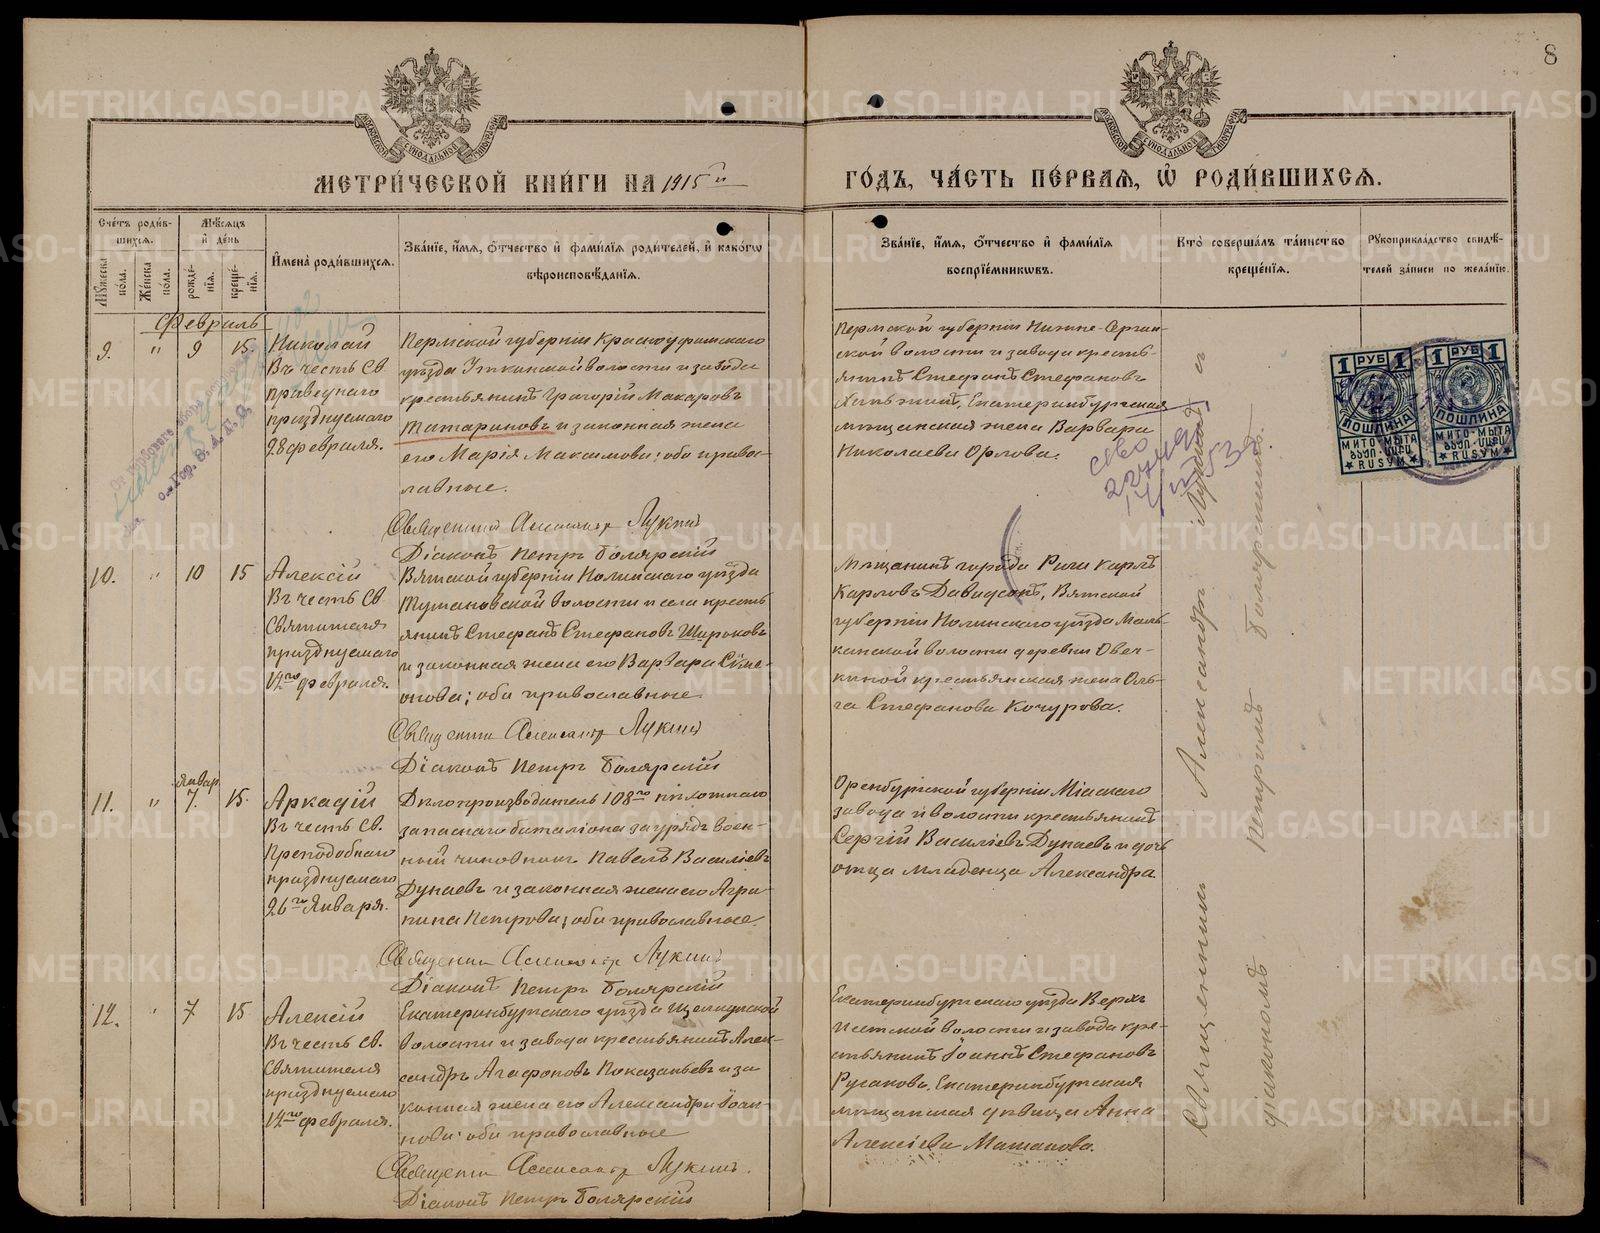 8
МЕТРИ́ЧЕСКОЙ КНИ́ГИ НА 1915й
ГО́ДЪ, ЧА́СТЬ ПЕ́РВАЯ, Ѡ҆ РОДИ́ВШИХСЯ.
Сче́тъ роди́в-
шихся.
Му́жеска по́ла.
Же́нска по́ла.
Мѣ́сяцъ
и҆ де́нь
рожде́-
нїя.
креще́-
нїя.
И҆мена̀ роди́вшихся.
Зва́нїе, и҆́мя, ѻ҆́тчество и҆ фами́лїя роди́телей, и҆ како́гѡ
вѣроисповѣ́данїя.
Зва́нїе, и҆́мя, ѻ҆́тчество и҆ фами́лїя
воспрїе́мниковъ.
Кто̀ соверша́лъ та́инство
креще́нїя.
Рꙋкоприкла́дство свидѣ́-
телей за́писи по жела́нїю.
Февраль
9. " 9 15.
Николай
Въ честь Св
праведнаго
празднуемаго
28 февраля.
Пермской губерніи Красноуфимскаго
уѣзда Уткинской волости и завода
крестьянинъ Григорій Макаровъ
Татариновъ и законная жена
его Марія Максимова; оба право-
славные.
Священникъ Александръ Лукинъ
Діаконъ Петръ Боляр­скій
Пермской губерніи Нижне-Сергин-
ской волости и завода кресть-
янинъ Стефанъ Стефановъ
Екатеринбургская
мѣщанская жена Варвара
Николаева Орлова.
10. " 10 15
Алексій
Въ честь Св
Святителя
празднуемаго
12го февраля.
Вятской губерніи Нолинскаго уѣзда
Тушановской волости и села кресть
янинъ Стефанъ Стефановъ Широковъ
и законная жена его Варвара Симе-
онова; оба православные
Священникъ Александръ Лукинъ
Діаконъ Петръ Болярскій
Мѣщанинъ города Риги Карлъ
Карловъ Давидсонъ, Вятской
губерніи Нолинскаго уѣзда Маль-
канской волости деревни Овеч-
киной крестьянская жена Оль-
га Стефанова Кочурова.
Январ.
11. " 7. 15.
Аркадій
Въ честь Св.
Преподобнаго
празднуемаго
26го Января.
Дѣлопроизводитель 108го пѣхотнаго
запаснаго баталіона зауряд воен-
ный чиновникъ Павелъ Василіевъ
Дунаевъ и законная жена его Агри-
пина Петрова; оба православные.
Священникъ Александръ Лукинъ
Діаконъ Петръ Болярскій
Оренбургской губерніи Міаскаго
завода и волости крестьянинъ
Сергій Василіевъ Дунаевъ и дочь
отца младенца Александра
12. " 7 15
Алексій
Въ честь Св.
Святителя
празднуемаго
12го февраля.
Екатеринбургскаго уѣзда Щелкунской
волости и завода крестьянинъ Алек-
сандръ Агафоновъ Показаньевъ и за
конная жена его Александра Іоан-
нова; оба православные
Священникъ Александръ Лукинъ.
Діаконъ Петръ Болярскій
Екатеринбургскаго уѣзда Верхъ
Исетской волости и завода кре-
стьянинъ Іоаннъ Стефановъ
Русаковъ. Екатеринбургская
мѣщанская дѣвица Анна
Алексіева Маташова.
Священникъ Александръ Лукинъ съ
діакономъ Петромъ Болярскимъ.
1 РУБ 1
ПОШЛИНА
МИТО·МЫТА
RUSYM
1 РУБ 1
ПОШЛИНА
МИТО·МЫТА
RUSYM
METRIKI.GASO-URAL.RU